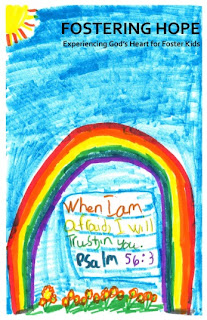 FOSTERING HOPE
Experiencing God's Heart for Foster Kids
When I am
afraid, I will
Trust in You.
Psalm 56:3